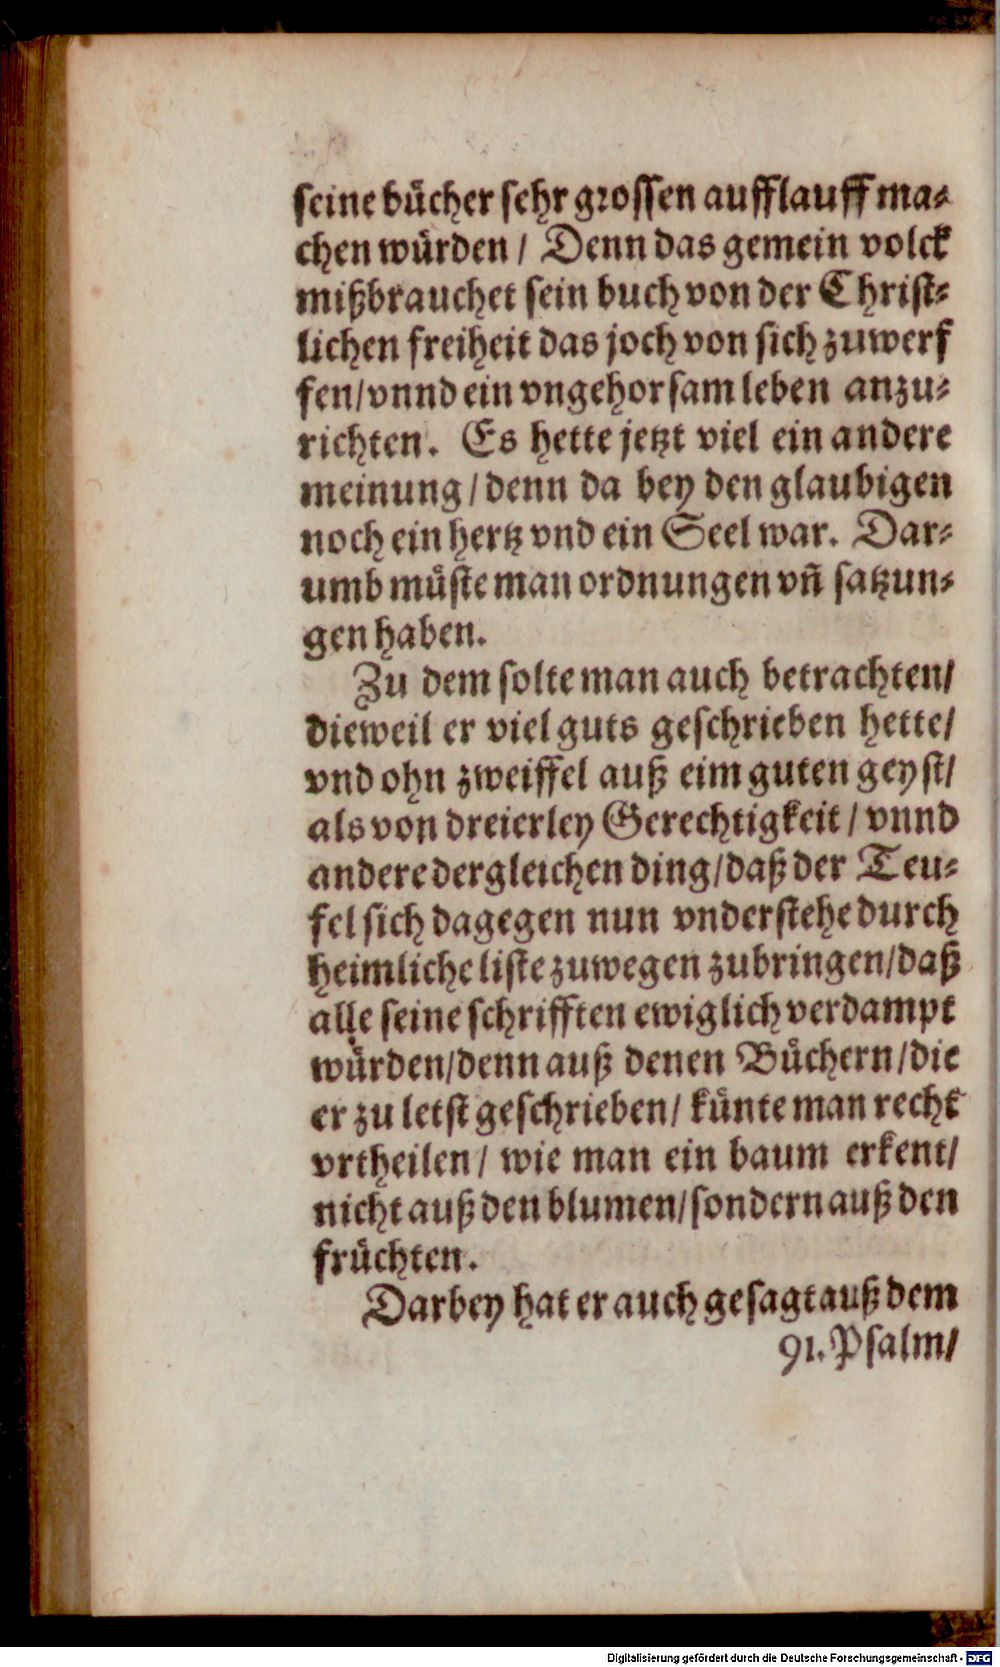 seine bücher sehr grossen aufflauff ma⸗
chen würden / Denn das gemein volck
mißbrauchet sein buch von der Christ⸗
lichen freiheit das joch von sich zuwerf
fen/vnnd ein vngehorsam leben anzu⸗
richten. Es hette jetzt viel ein andere
meinung/denn da bey den glaubigen
noch ein hertz vnd ein Seel war. Dar⸗
umb müste man ordnungen vñ satzun⸗
gen haben.
Zu dem solte man auch betrachten/
dieweil er viel guts geschrieben hette/
vnd ohn zweiffel auß eim guten geyst/
als von dreierley Gerechtigkeit / vnnd
andere dergleichen ding/daß der Teu⸗
fel sich dagegen nun vnderstehe durch
heimliche liste zuwegen zubringen/daß
alle seine schrifften ewiglich verdampt
würden/denn auß denen Büchern/die
er zu letst geschrieben/ künte man recht
vrtheilen/ wie man ein baum erkent/
nicht auß den blumen/sondern auß den
früchten.
Darbey hat er auch gesagt auß dem
91. Psalm/
Digitalisierung gefördert durch die Deutsche Forschungsgemeinschaft - DFG